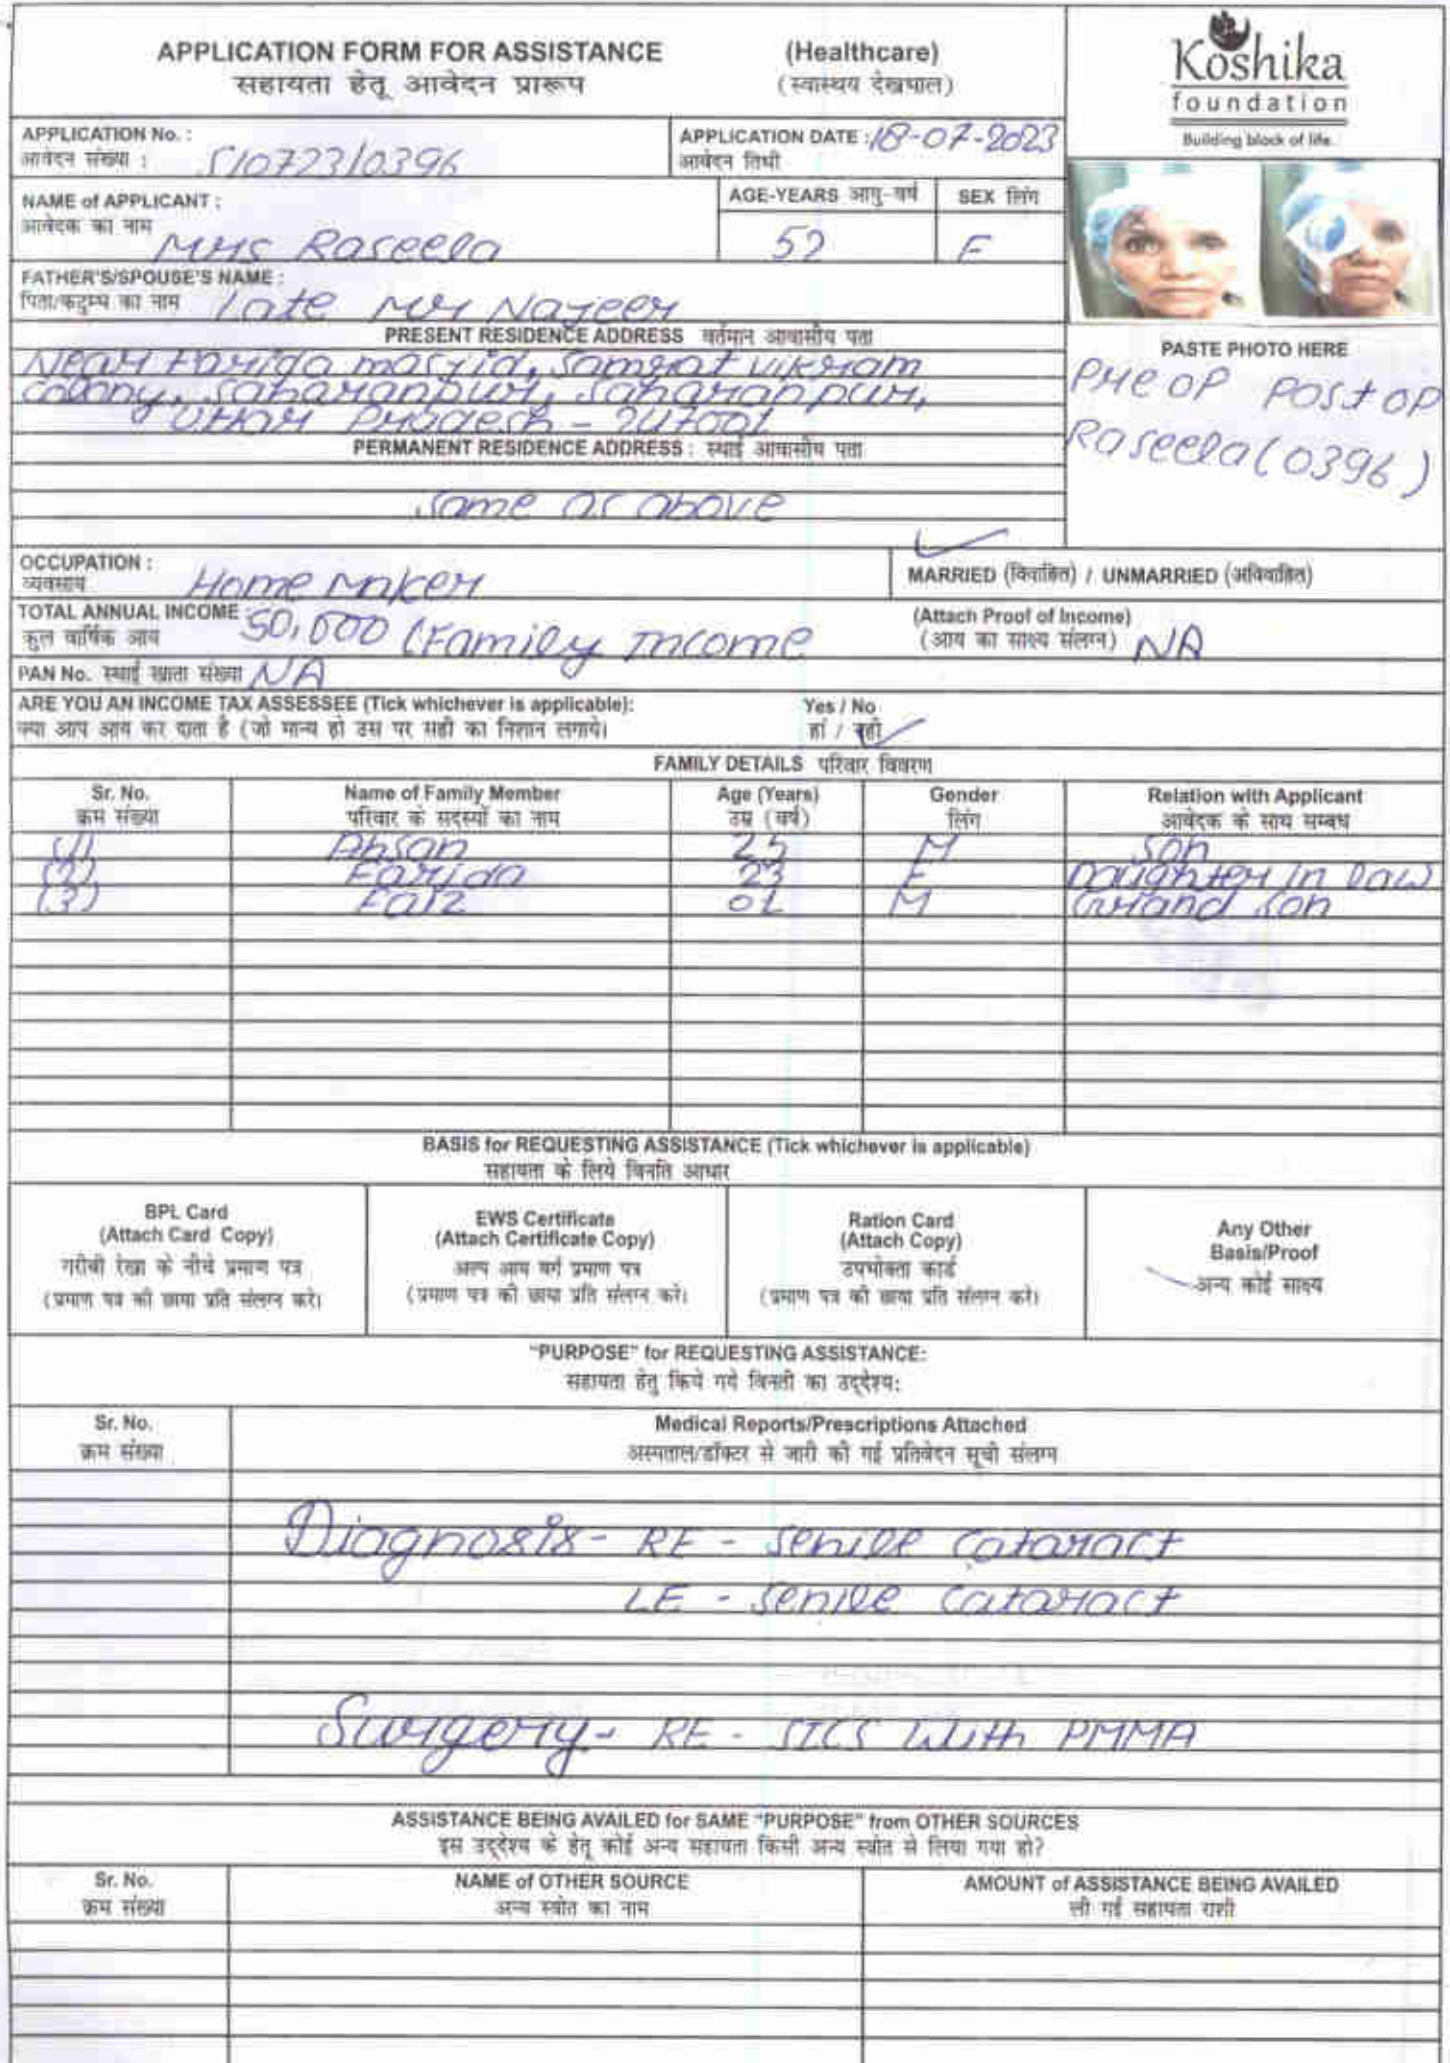 APPLICATION FORM FOR ASSISTANCE (Healthcare)
सहायता हेतू आवेदन प्रारूप (स्वास्थय देखभाल)
Koshika
foundation
Building block of life.
APPLICATION No. : APPLICATION DATE : 18-07-2023
आवेदन संख्या : S10723/0396 आवेदन तिथी
NAME of APPLICANT : AGE-YEARS आयु-वर्ष SEX लिंग
आवेदक का नाम Mrs Raseela 52 F
FATHER'S/SPOUSE'S NAME :
पिता/कटुम्ब का नाम Late Mr Nazeer
PRESENT RESIDENCE ADDRESS वर्तमान आवासीय पता
Near Farida masjid, Samrat vikram
colony, Saharanpur, Saharanpur,
Uttar Pradesh - 247001
PERMANENT RESIDENCE ADDRESS : स्थाई आवासीय पता
Same as above
PASTE PHOTO HERE
Pre op Post op
Raseela (0396)
OCCUPATION :
व्यवसाय Home Maker
MARRIED (विवाहित) / UNMARRIED (अविवाहित)
TOTAL ANNUAL INCOME : 50,000 (Family Income (Attach Proof of Income)
कुल वार्षिक आय (आय का साक्ष्य संलग्न) NA
PAN No. स्थाई खाता संख्या NA
ARE YOU AN INCOME TAX ASSESSEE (Tick whichever is applicable): Yes / No
क्या आप आय कर दाता है (जो मान्य हो उस पर सही का निशान लगाये। हां / नहीं
FAMILY DETAILS परिवार विवरण
Sr. No. Name of Family Member Age (Years) Gender Relation with Applicant
क्रम संख्या परिवार के सदस्यों का नाम उम्र (वर्ष) लिंग आवेदक के साथ सम्बंध
(1) Ahsan 25 M Son
(2) Farida 23 F Daughter in Law
(3) Faiz 01 M Grand Son
BASIS for REQUESTING ASSISTANCE (Tick whichever is applicable)
सहायता के लिये विनति आधार
BPL Card
(Attach Card Copy)
गरीबी रेखा के नीचे प्रमाण पत्र
(प्रमाण पत्र की छाया प्रति संलग्न करे।
EWS Certificate
(Attach Certificate Copy)
अल्प आय वर्ग प्रमाण पत्र
(प्रमाण पत्र की छाया प्रति संलग्न करे।
Ration Card
(Attach Copy)
उपभोक्ता कार्ड
(प्रमाण पत्र की छाया प्रति संलग्न करे।
Any Other
Basis/Proof
अन्य कोई साक्ष्य
"PURPOSE" for REQUESTING ASSISTANCE:
सहायता हेतु किये गये विनती का उद्देश्य:
Sr. No. Medical Reports/Prescriptions Attached
क्रम संख्या अस्पताल/डॉक्टर से जारी की गई प्रतिवेदन सूची संलग्न
Diagnosis - RE - Senile Cataract
LE - Senile Cataract
Surgery - RE - SICS With PMMA
ASSISTANCE BEING AVAILED for SAME "PURPOSE" from OTHER SOURCES
इस उद्देश्य के हेतू कोई अन्य सहायता किसी अन्य स्त्रोत से लिया गया हो?
Sr. No. NAME of OTHER SOURCE AMOUNT of ASSISTANCE BEING AVAILED
क्रम संख्या अन्य स्त्रोत का नाम ली गई सहायता राशी